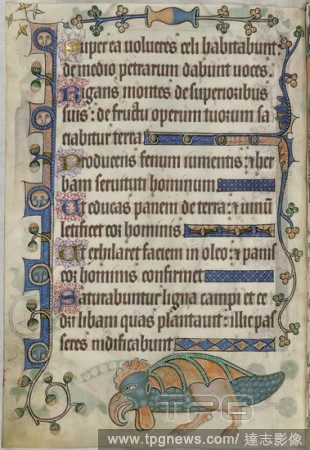 Super ea volucres celi habitabunt:
de medio petrarum dabunt voces.
Rigans montes de superioribus
suis: de fructu operum tuorum sa
ciabitur terra
Producens fenum iumentis: et her
bam servituti hominum
Ut educas panem de terra: et vinum
letificet cor hominis
Ut exhilaret faciem in oleo: et panis
cor hominis confirmet
Saturabuntur ligna campi et ce
dri libani quas plantavit: illic pas
seres nidificabunt
TPG
www.tpgnews.com/達志影像